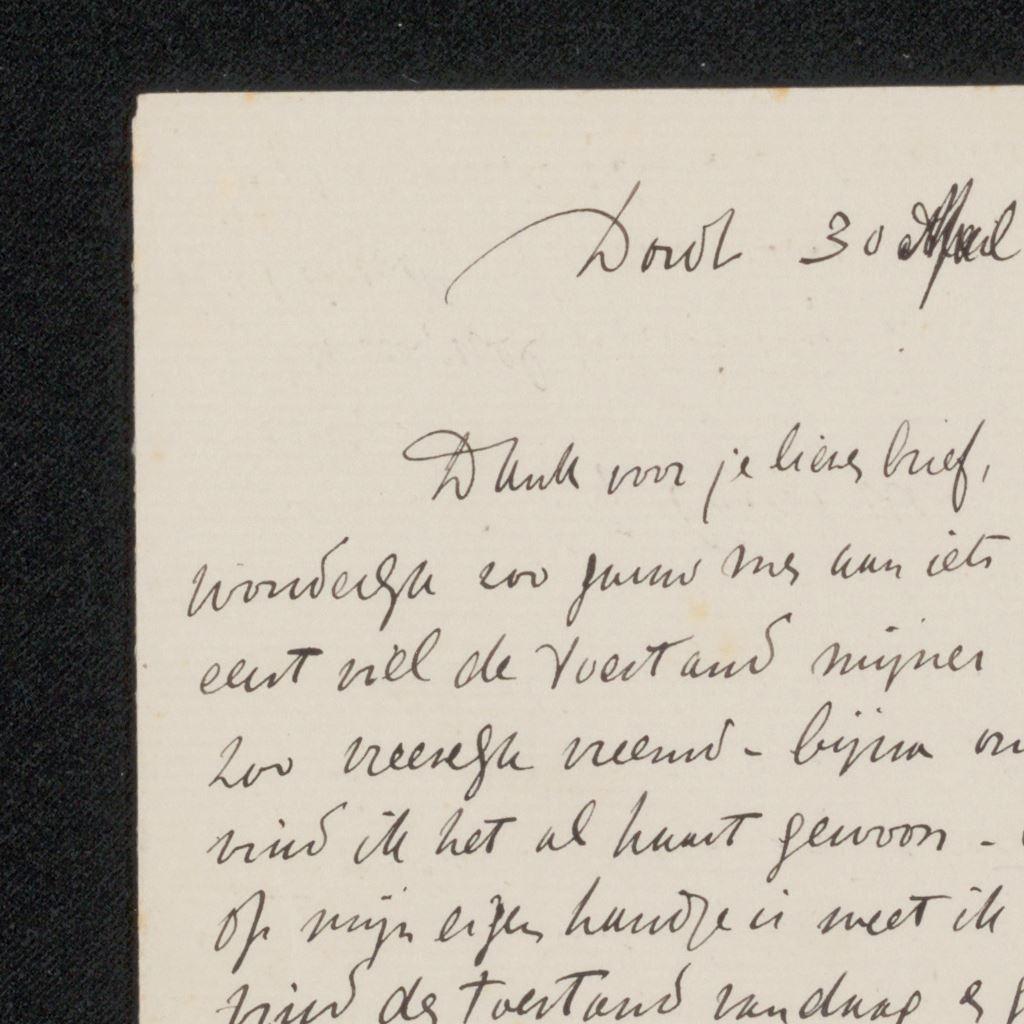 Dordt 30 April
Dank voor je lieven brief,
wonderlijk zoo gauw men aan iets
eerst viel de toestand mijner
zoo vreeselijk vreemd - bijna on
vind ik het al haast gewoon -
op mijn eigen handje is weet ik
vind de toestand vandaag